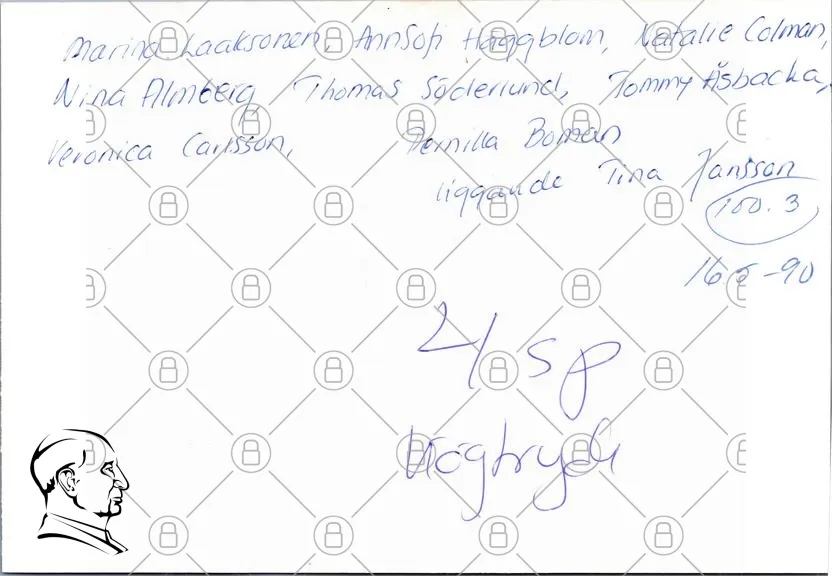 Marina Laaksonen, AnnSofi Häggblom, Natalie Colman,
Nina Almberg, Thomas Söderlund, Tommy Åsbacka,
Veronica Carlsson, Pernilla Boman
liggande Tina Jansson
100.3
16.5-90
4/sp
Högtryck